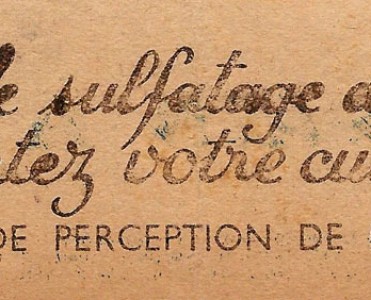 le sulfatage a
tez votre cui
DE PERCEPTION DE